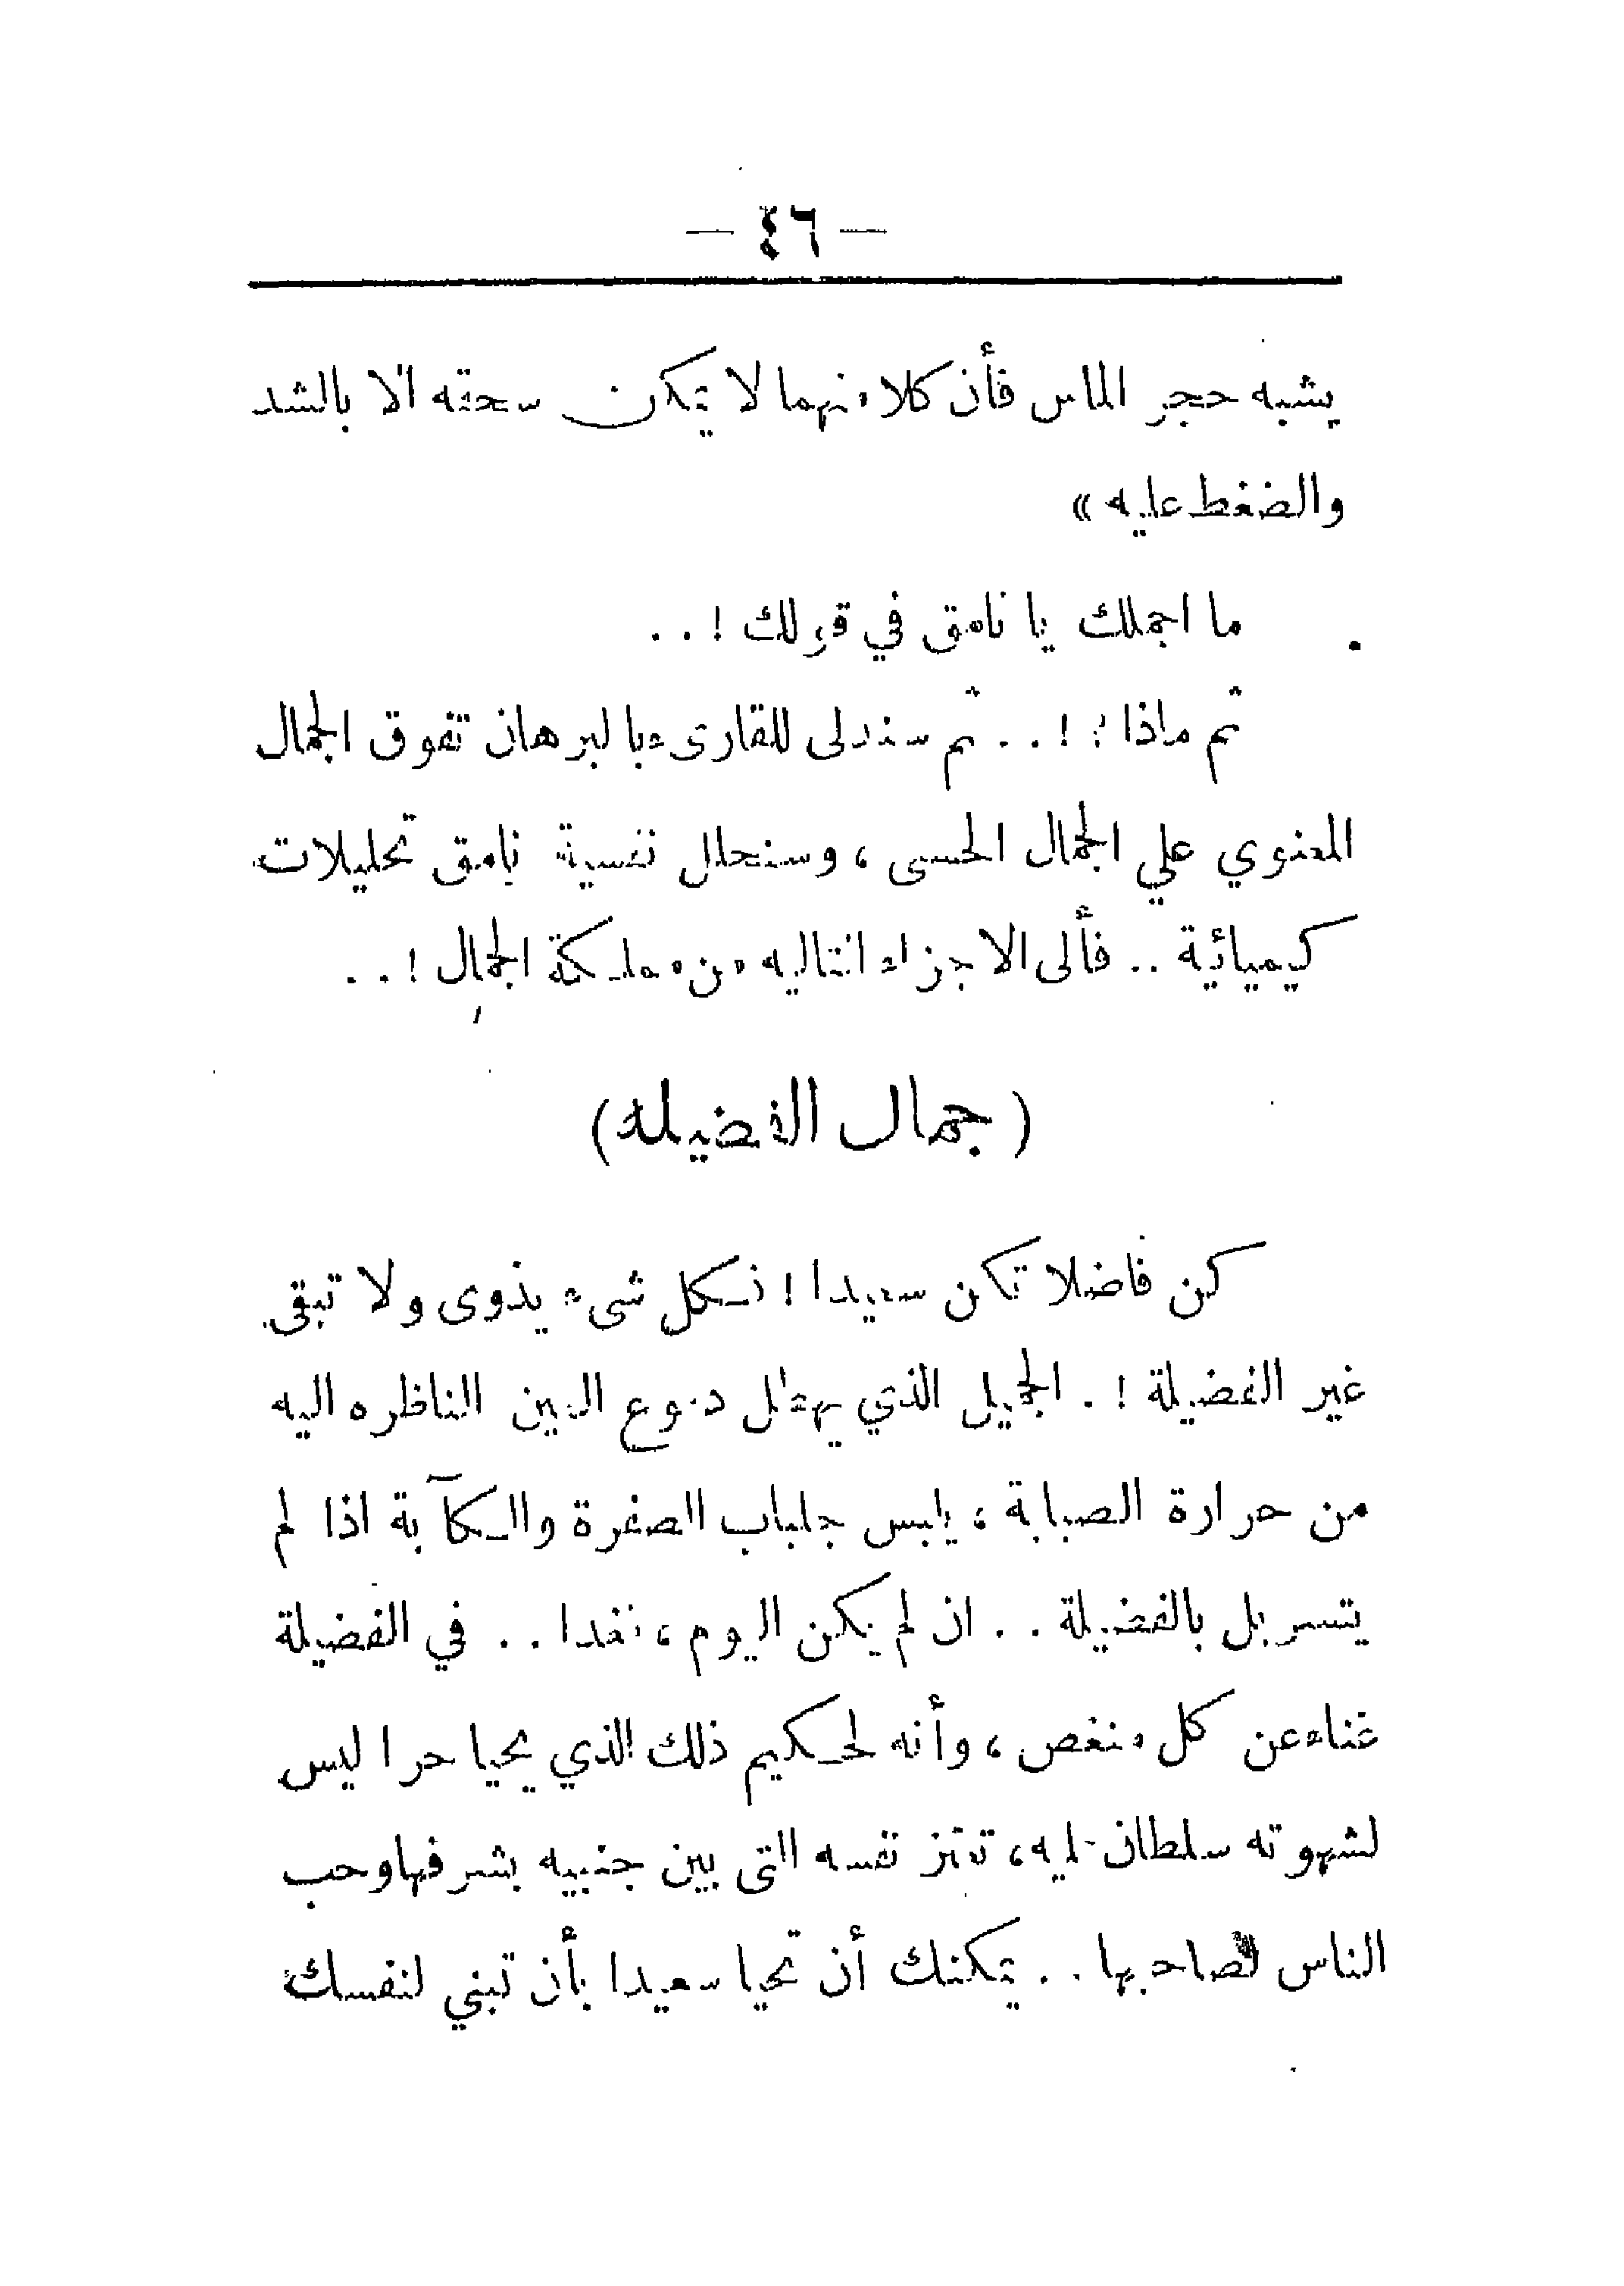 — ٤٦ —
يشبه حجر الماس فأن كلا منهما لا يمكن سحقه الا بالشد
والضغط عليه »
ما اجملك يا نامق في قولك ! . .
ثم ماذا ؟ ! . . ثم سندلى للقارىء بالبرهان تفوق الجمال
المعنوي علي الجمال الحسى ، وسنحلل نفسية نامق تحليلات
كيميائية . . فألى الاجزاء التاليه من مملكة الجمال ! . .
( جمال الفضيله )
كن فاضلا تكن سعيدا ! فكل شىء يذوى ولا تبقى
غير الفضيلة ! . الجميل الذي يهطل دموع العين الناظره اليه
من حرارة الصبابة ، يلبس جلباب الصفرة والكآبة اذا لم
يتسربل بالفضيلة . . ان لم يكن اليوم ، فغدا . . في الفضيلة
غناء عن كل منغص ، وأنه لحكيم ذلك الذي يحيا حرا ليس
لشهوته سلطان عليه ، تعتز نفسه التى بين جنبيه بشرفها وحب
الناس لصاحبها . . يمكنك أن تحيا سعيدا بأن تبني لنفسك